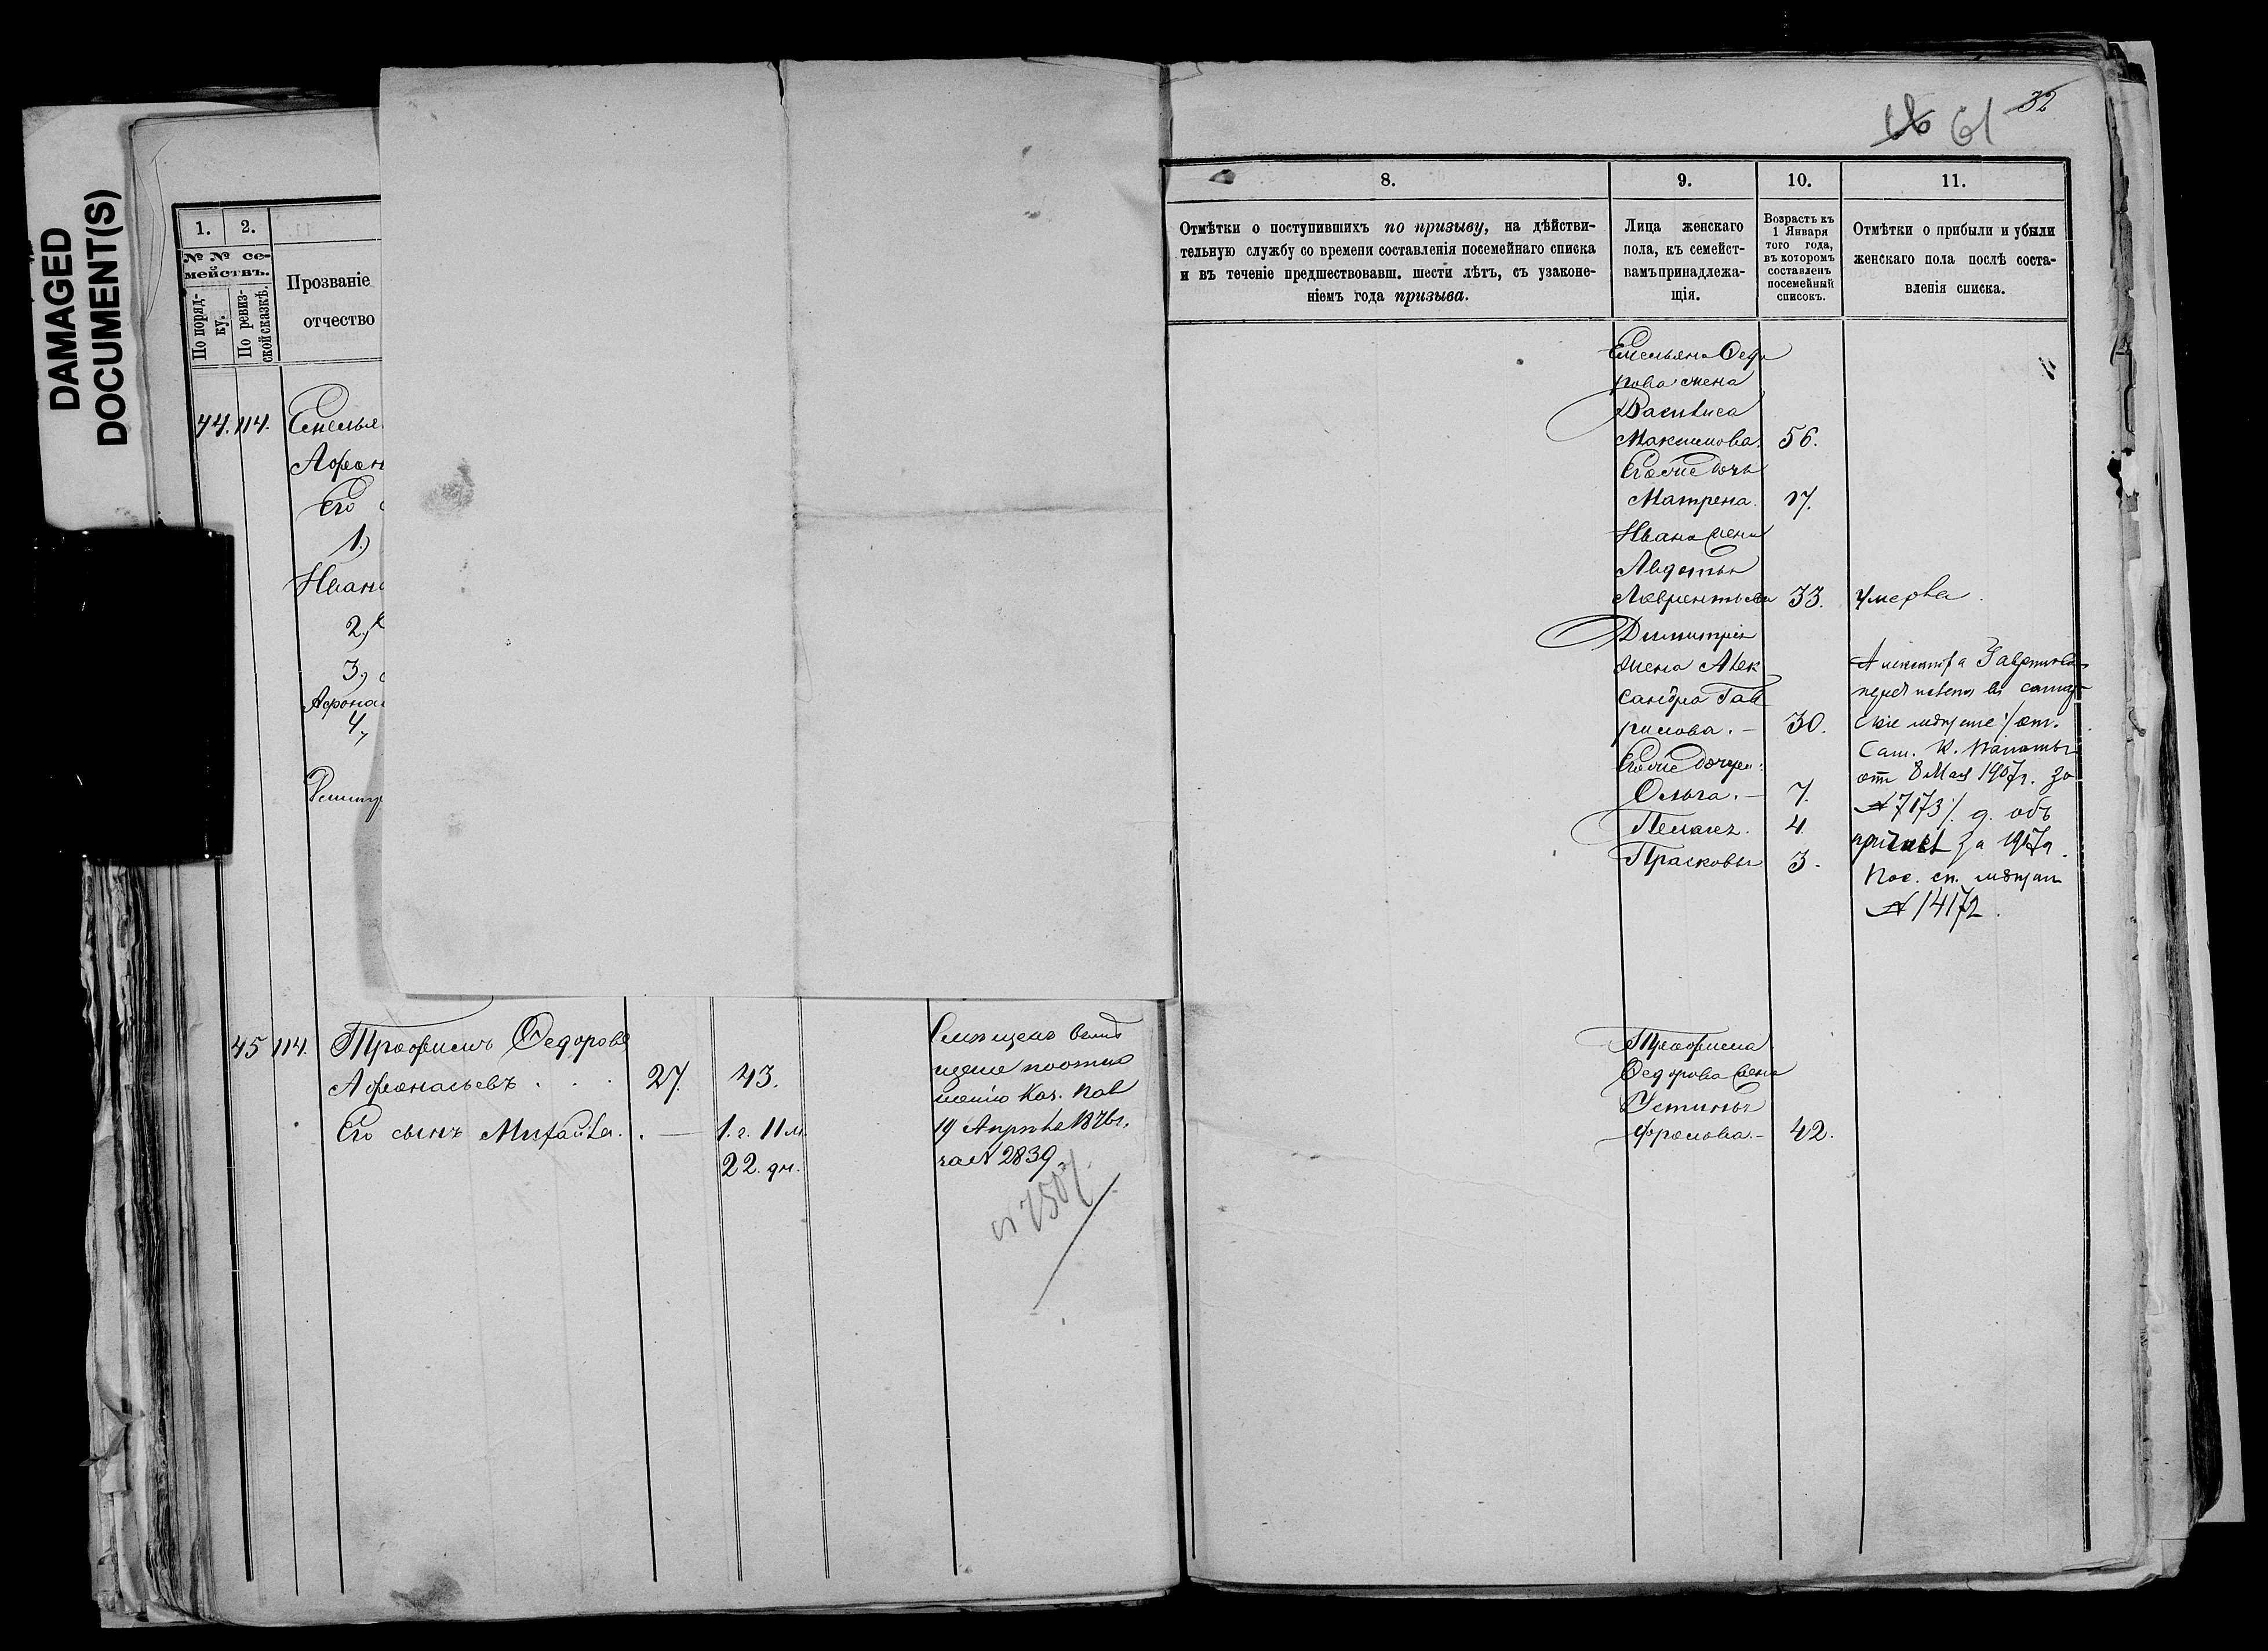 DAMAGED
DOCUMENT(S)
1.
2.
№ № се-
мействъ.
По поряд-
ку.
По ревиз-
ской сказкѣ.
Прозваніе
отчество
44. 114.
Емелья
Афан
Его
1.)
Иван
2.)
3.)
Афона
4.)
45 114. Трофимъ Федоровъ
Афонасьевъ . . . 27. 43.
Его сынъ Михаила . . — 1. г. 11 м.
22. дн.
Каз. Пал
19 Апрѣля 1876г.
за № 2839
№ 7507
32
61
8.
Отмѣтки о поступившихъ по призыву, на дѣйстви-
тельную службу со времени составленія посемейнаго списка
и въ теченіе предшествовавш. шести лѣтъ, съ узаконе-
ніемъ года призыва.
9.
Лица женскаго
пола, къ семейст-
вамъ принадлежа-
щія.
10.
Возрастъ къ
1 Января
того года,
въ которомъ
составленъ
посемейный
списокъ.
11.
Отмѣтки о прибыли и убыли
женскаго пола послѣ соста-
вленія списка.
Емельяна Федо
рова жена
Василиса
Максимова. 56.
Егоже дочь
Матрена. 17.
Ивана жена
Авдотья
Лаврентьева 33. Умерла.
Димитрія
жена Алек
сандра Гав
рилова. — 30.
Егоже дочери:
Ольга. — 7.
Пелагея. 4.
Прасковья 3.
Александра Гаврилова
перечислена въ самар
скіе мѣщане /от.
Сам. К. Палаты
от 8 Мая 1907г. за
№ 7173/. д. объ
причисл за 1907г.
Пос. сп. мѣщан
№ 14172.
Трофима
Федорова жена
Устинья
Фролова. — 42.